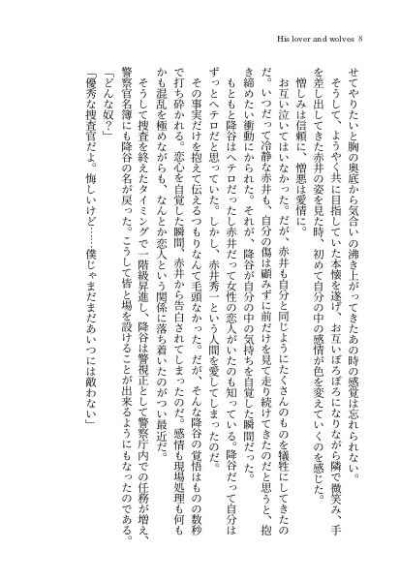 His lover and wolves 8
せてやりたいと胸の奥底から気合いの沸き上がってきたあの時の感覚は忘れられない。
そうして、ようやく共に目指していた本懐を遂げ、お互いぼろぼろになりながら隣で微笑み、手
を差し出してきた赤井の姿を見た時、初めて自分の中の感情が色を変えていくのを感じた。
憎しみは信頼に、憎悪は愛情に。
お互い泣いてはいなかった。だが、赤井も自分と同じようにたくさんのものを犠牲にしてきたの
だ。いつだって冷静な赤井も、自分の傷は顧みずに前だけを見て走り続けてきたのだと思うと、抱
き締めたい衝動にかられた。それが、降谷が自分の中の気持ちを自覚した瞬間だった。
もともと降谷はヘテロだったし赤井だって女性の恋人がいたのも知っている。降谷だって自分は
ずっとヘテロだと思っていた。しかし、赤井秀一という人間を愛してしまったのだ。
その事実だけを抱えて伝えるつもりなんて毛頭なかった。だが、そんな降谷の覚悟はものの数秒
で打ち砕かれる。恋心を自覚した瞬間、赤井から告白されてしまったのだ。感情も現場処理も何も
かも混乱を極めながらも、なんとか恋人という関係に落ち着いたのがつい最近だ。
そうして捜査を終えたタイミングで一階級昇進し、降谷は警視正として警察庁内での任務が増え、
警察官名簿にも降谷の名が戻った。こうして皆と場を設けることが出来るようにもなったのである。
「どんな奴？」
「優秀な捜査官だよ。悔しいけど……僕じゃまだまだあいつには敵わない」